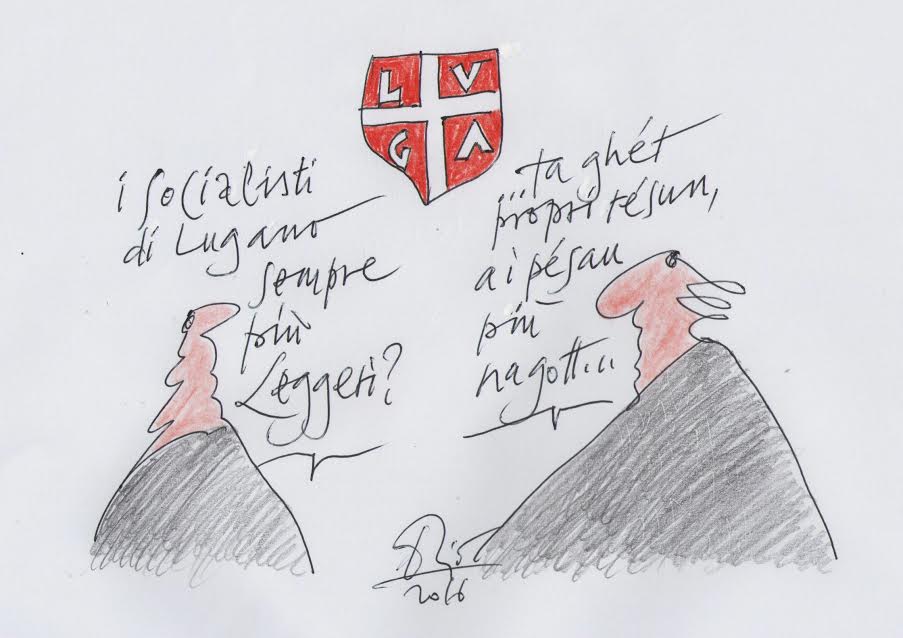 L V
G A
i Socialisti
di Lugano
sempre
più
Leggeri?
...ta ghét
propri résun,
a i pésan
più
nagott...
2016